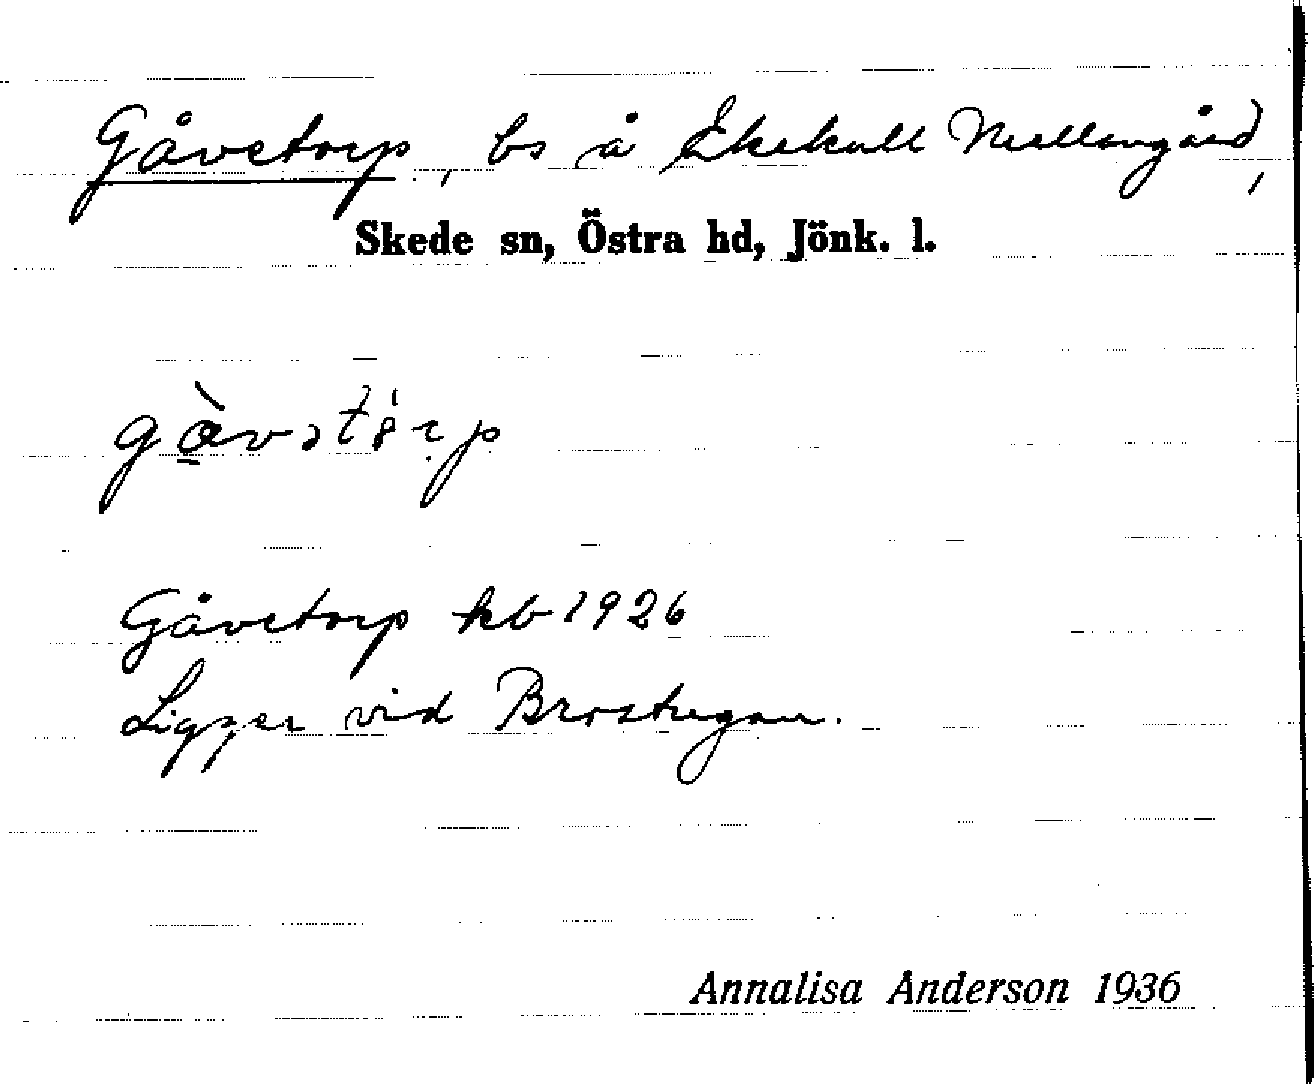 Gåvetorp, bs å Ekekull Mellangård,
Skede sn, Östra hd, Jönk. l.
Gåvetorp kb 1926
Ligger vid Brostugan.
Annalisa Anderson 1936